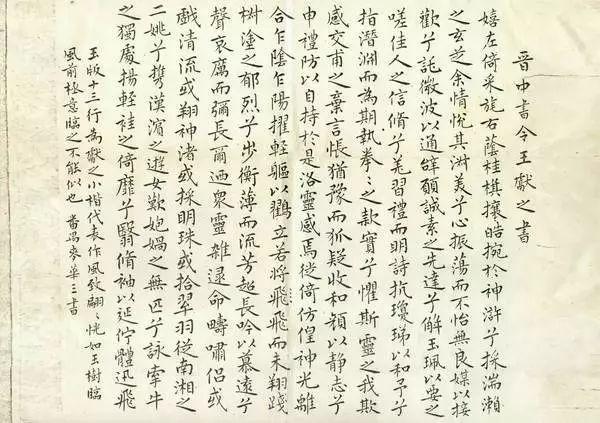 晋中書令王獻之書
嬉左倚采旄右蔭桂棋攘皓捥於神滸兮採湍瀨
之玄芝余情悅其淋美兮心振蕩而不怡無良媒以接
歡兮託微波以通辭願誠素之先達兮解玉珮以要之
嗟佳人之信脩兮羌習禮而明詩抗瓊珶以和予兮
指潛淵而為期執拳〻之款實兮懼斯靈之我欺
感交甫之棄言悵猶豫而狐疑收和顏以静志兮
申禮防以自持於是洛靈感焉徙倚仿偟神光離
合乍陰乍陽擢輕軀以鸖立若將飛飛而未翔踐
樹塗之郁烈兮步衡薄而流芳超長吟以慕遠兮
聲哀厲而彌長爾迺衆靈雜遝命疇嘯侶或
戲清流或翔神渚或採明珠或拾翠羽從南湘之
二姚兮携漢濱之遊女歎匏媧之無匹兮詠牽牛
之獨處揚輕袿之倚靡兮翳脩袖以延佇體迅飛
玉版十三行為獻之小楷代表作風致翩〻恍如玉樹臨
風前極意臨之不能似也 番禺麥華三書